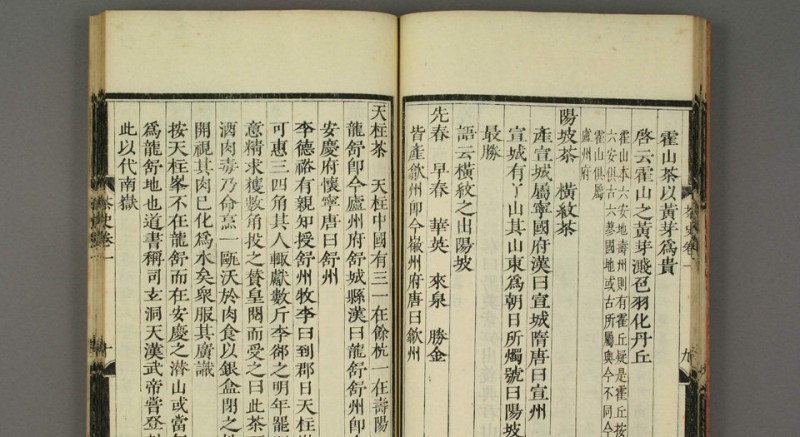 霍山茶以黃芽爲貴
啓云霍山之黃芽淺芭羽化丹丘
霍山本六安地壽州則有霍丘疑是霍丘按
六安俱古六蓼國地或古所屬與今不同今
霍山俱屬
廬州府
陽坡茶 橫紋茶
產宣城屬寧國府漢曰宣城隋唐曰宣州
宣城有丫山其山東爲朝日所燭號曰陽坡
最勝
語云橫紋之出陽坡
先春 早春 華英 來泉 勝金
皆產歙州卽今徽州府唐曰歙州
茶史卷一
九
天柱茶 天柱中國有三一在餘杭一在壽陽
龍舒卽今廬州府舒城縣漢曰龍舒舒州卽今
安慶府懷寧唐曰舒州
李德裕有親知授舒州牧李曰到郡日天柱
可惠三四角其人輒獻數斤李郤之明年罷
意精求獲數角投之贊皇閱而受之曰此茶
酒肉毒乃命烹一甌沃於肉食以銀盒閉之
開視其肉已化爲水矣衆服其廣識
按天柱峯不在龍舒而在安慶之潛山或當
爲龍舒地也道書稱司玄洞天漢武帝嘗登
此以代南嶽
茶史卷一
十